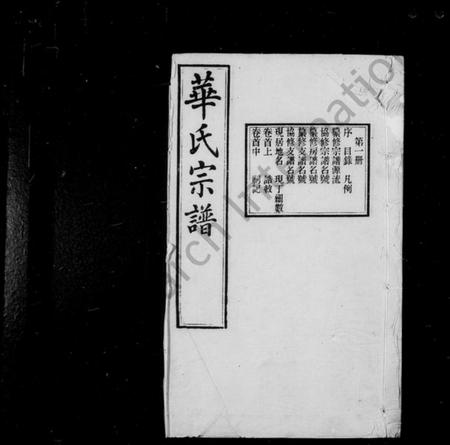 華氏宗譜
第一册
序 目錄 凡例
纂修宗譜源流
協修宗譜名號
纂修房譜名號
纂修支譜名號
協修支譜名號
現居地名 現丁細數
卷首上 誥敕
卷首中 祠記
arch Internation